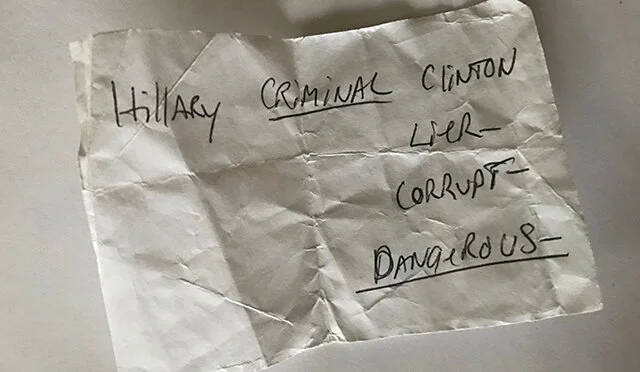 Hillary CRiMiNAL CLiNTON
LieR-
CORRUPT-
DANGeROUS-